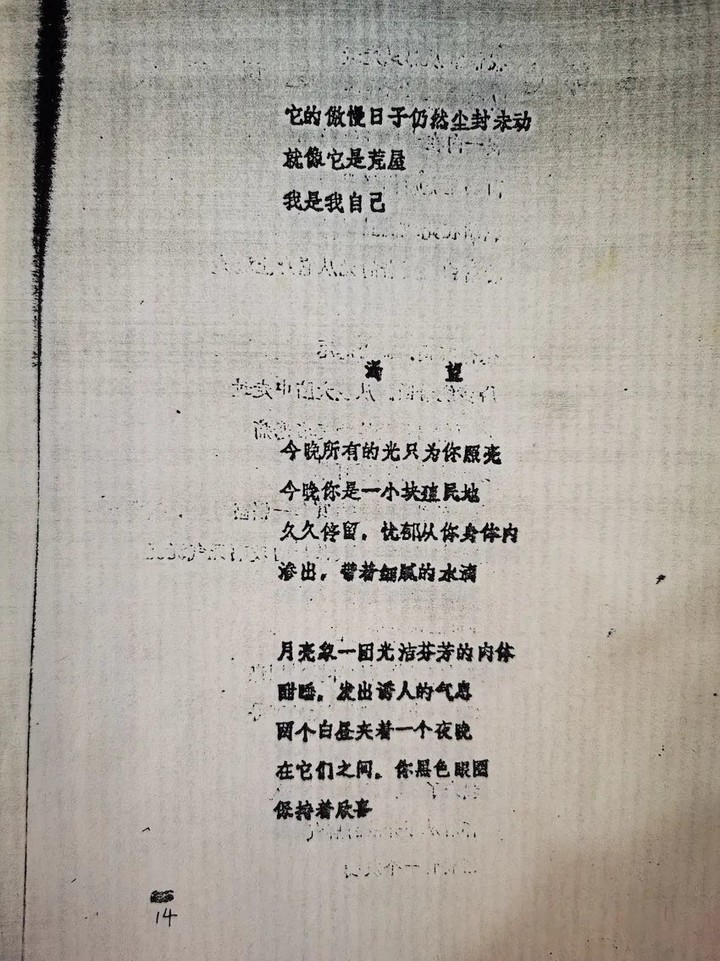 它的傲慢日子仍然尘封未动
就像它是荒屋
我是我自己
渴 望
今晚所有的光只为你照亮
今晚你是一小块殖民地
久久停留，忧郁从你身体内
渗出，带着细腻的水滴
月亮象一团光洁芬芳的肉体
酣睡，发出诱人的气息
两个白昼夹着一个夜晚
在它们之间，你黑色眼圈
保持着欣喜
14